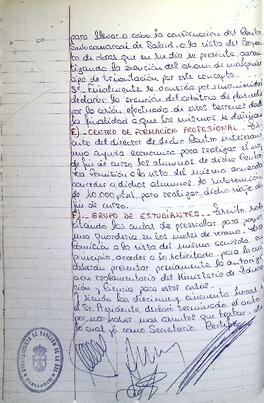 para llevar a cabo la construcción del Centro
Subcomarcal de Salud, a la vista del Proyec-
to de obras que en su día se presente, garan-
tizando la exención del abono de cualquier
tipo de tributación por este concepto.
Y finalmente se acuerda por unanimidad
declarar la exención del arbitrio de plusvalía
por la cesión efectuada de esos terrenos dada
la finalidad a que los mismos se destinan.
E) - CENTRO DE FORMACIÓN PROFESIONAL.- Es-
crito del director de dicho Centro interesan-
do una ayuda económica para realizar el viaje
de fin de curso los alumnos de dicho Centro.
La Comisión a la vista del mismo acuerda
conceder a dichos alumnos la subvención
de 10.000 ptas, para realizar dicho viaje de
fin de curso.
F) - GRUPO DE ESTUDIANTES.- Escrito soli-
citando las aulas de preescolar para poner
una Guardería en los meses de verano. La Co-
misión a la vista del mismo acuerda en
principio, acceder a lo solicitado, para lo cual
deberán presentar previamente la autoriza-
ción reglamentaria del Ministerio de Educa-
ción y Ciencia para estos casos.
Y siendo las diecinueve cincuenta horas
el Sr. Presidente, declaró terminado el acto
por no haber más asuntos que tratar, de
lo cual yo como Secretario. Certifico.